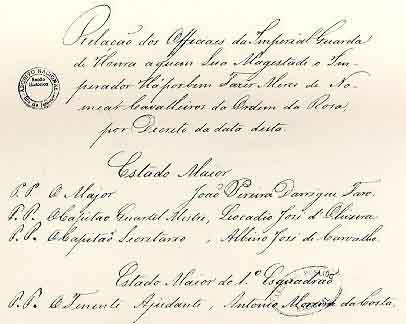 Relação dos Officiaes da Imperial Guarda
de Honra a quem Sua Magestade o Im-
perador Há por bem Fazer Merce de No-
mear Cavalleiros da Ordem da Rosa,
por Decreto da data desta.
Estado Maior
P.P. O Major João Pereira Darrigue Faro.
P.P. O Capitão Quartel Mestre, Leocadio José d'Oliveira
P.P. O Capitão Secretario, Albino José de Carvalho.
Estado Maior do 1.º Esquadrão
P.P. O Tenente Ajudante, Antonio Moreira da Costa.